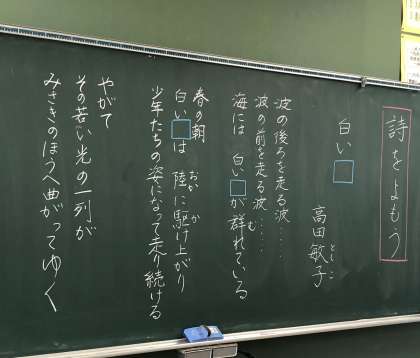 詩をよもう
白い□
高田敏子
としこ
波の後ろを走る波‥‥
波の前を走る波‥‥
海には 白い□が群れている
む
春の朝
白い□は 陸に駆け上がり
おか か
少年たちの姿になって走り続ける
やがて
その若い光の一列が
みさきのほうへ曲がってゆく